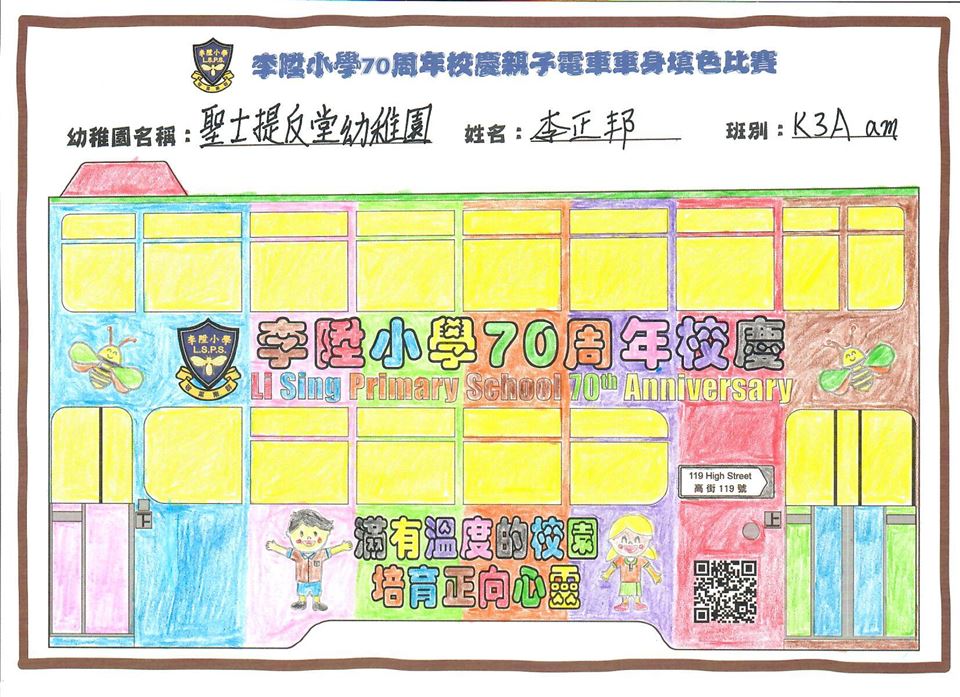 李陞小學
L.S.P.S.
李陞小學70周年校慶親子電車車身填色比賽
幼稚園名稱：聖士提反堂幼稚園 姓名：李正邦 班別：K3A am
李陞小學
L.S.P.S.
李陞小學70周年校慶
Li Sing Primary School 70th Anniversary
119 High Street
高街 119 號
上
上
滿有溫度的校園
培育正向心靈